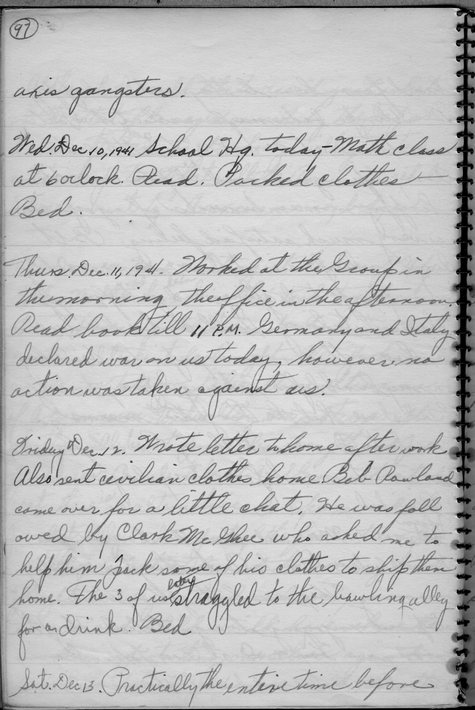 97
axis gangsters.
Wed. Dec 10, 1941 School Hq. today - Math class
at 6 oclock. Read. Packed clothes -
Bed.
Thurs. Dec. 11, 1941. Worked at the Group in
the morning the office in the afternoon.
Read book till 11 P.M. Germany and Italy
declared war on us today, however no
action was taken against us.
Friday Dec 12. Wrote letter to home after work
Also sent civilian clothes home Bob Rowland
come over for a little chat. He was foll
owed by Clark McGhee who asked me to
help him pack some of his clothes to ship them
home. The 3 of us straggled to the bowling alley
for a drink. Bed
Sat. Dec 13. Practically the entire time before